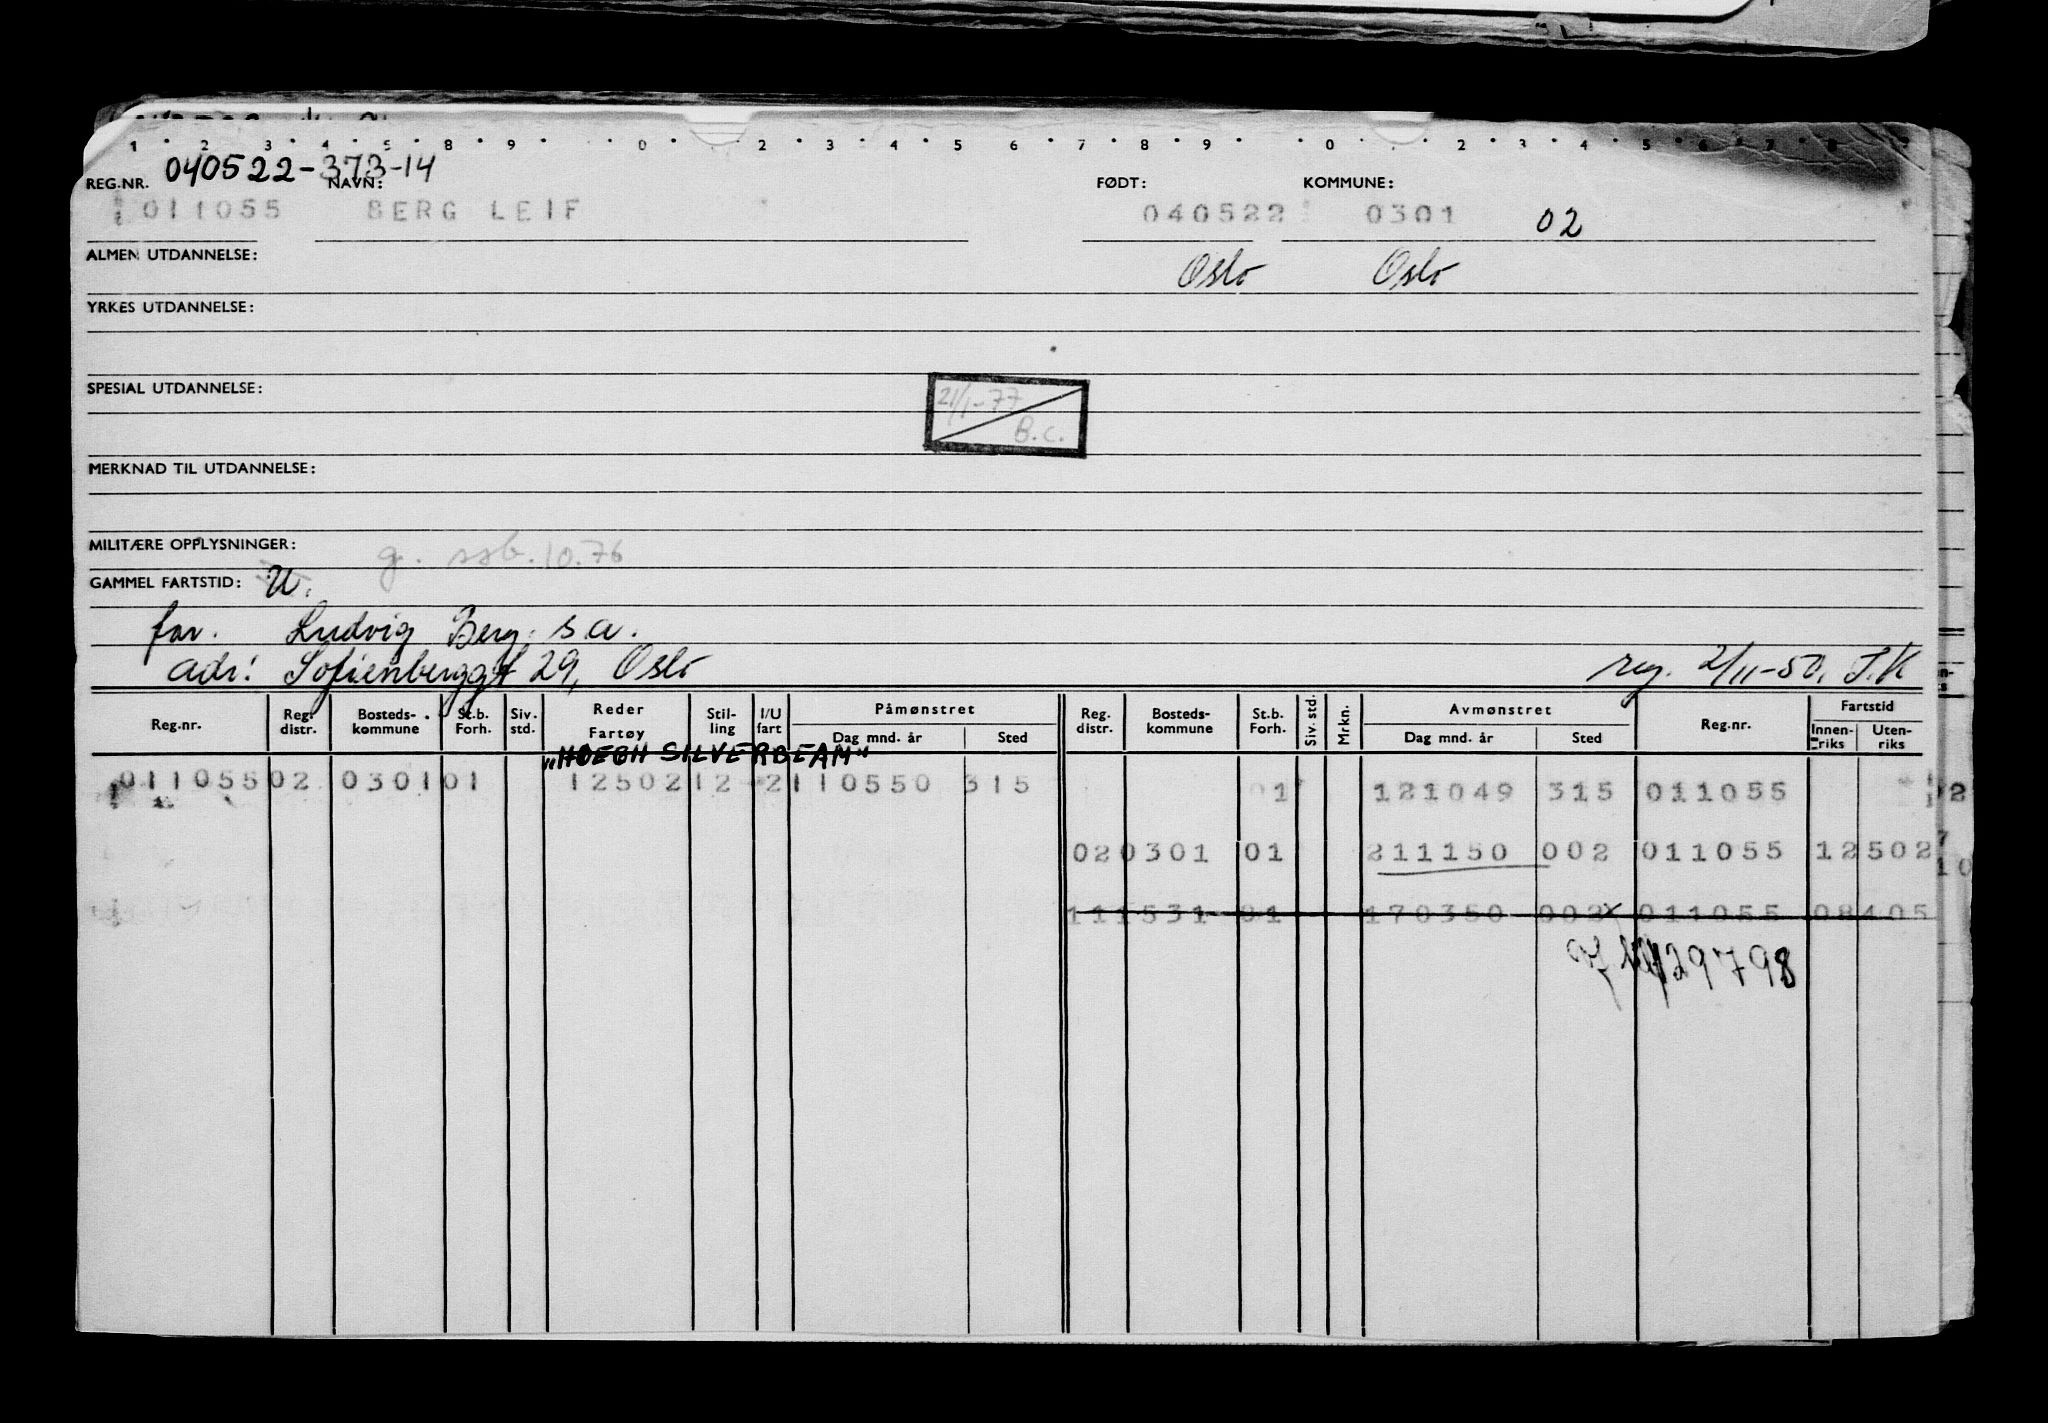 1 2 3 4 5 8 9 0 2 3 4 5 6 7 8 9 0 2 3 4 5 6 7 8 9
040522-373-14
REG.NR. NAVN: FØDT: KOMMUNE:
011055 BERG LEIF 040522 0301 02
ALMEN UTDANNELSE: Oslo Oslo
YRKES UTDANNELSE:
SPESIAL UTDANNELSE:
21/1-77
B.c.
MERKNAD TIL UTDANNELSE:
MILITÆRE OPPLYSNINGER: g. ssb. 10.76
GAMMEL FARTSTID: U.
far. Ludvig Berg. s a.
adr: Sofienberggt 29, Oslo reg. 2/11-50. J.K
Reg.nr. Reg. distr. Bosteds-kommune St.b. Forh. Siv. std. Reder Fartøy Stil-ling I/U fart Påmønstret Dag mnd. år Sted Reg. distr. Bosteds-kommune St.b. Forh. Siv. std. Mrkn. Avmønstret Dag mnd. år Sted Reg.nr. Fartstid Innen-riks Uten-riks
"HOEGH SILVERBEAM"
011055 02 0301 01 12502 12 2 110550 315 01 121049 315 011055
02 0301 01 211150 002 011055 12502
11 1531 01 170350 002 011055 08405
129798